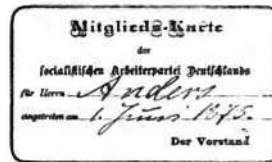 Mitglieds-Karte
der
socialistischen Arbeiterpartei Deutschlands
für Herrn Anders
eingetreten am 1. Juni 1875.
Der Vorstand